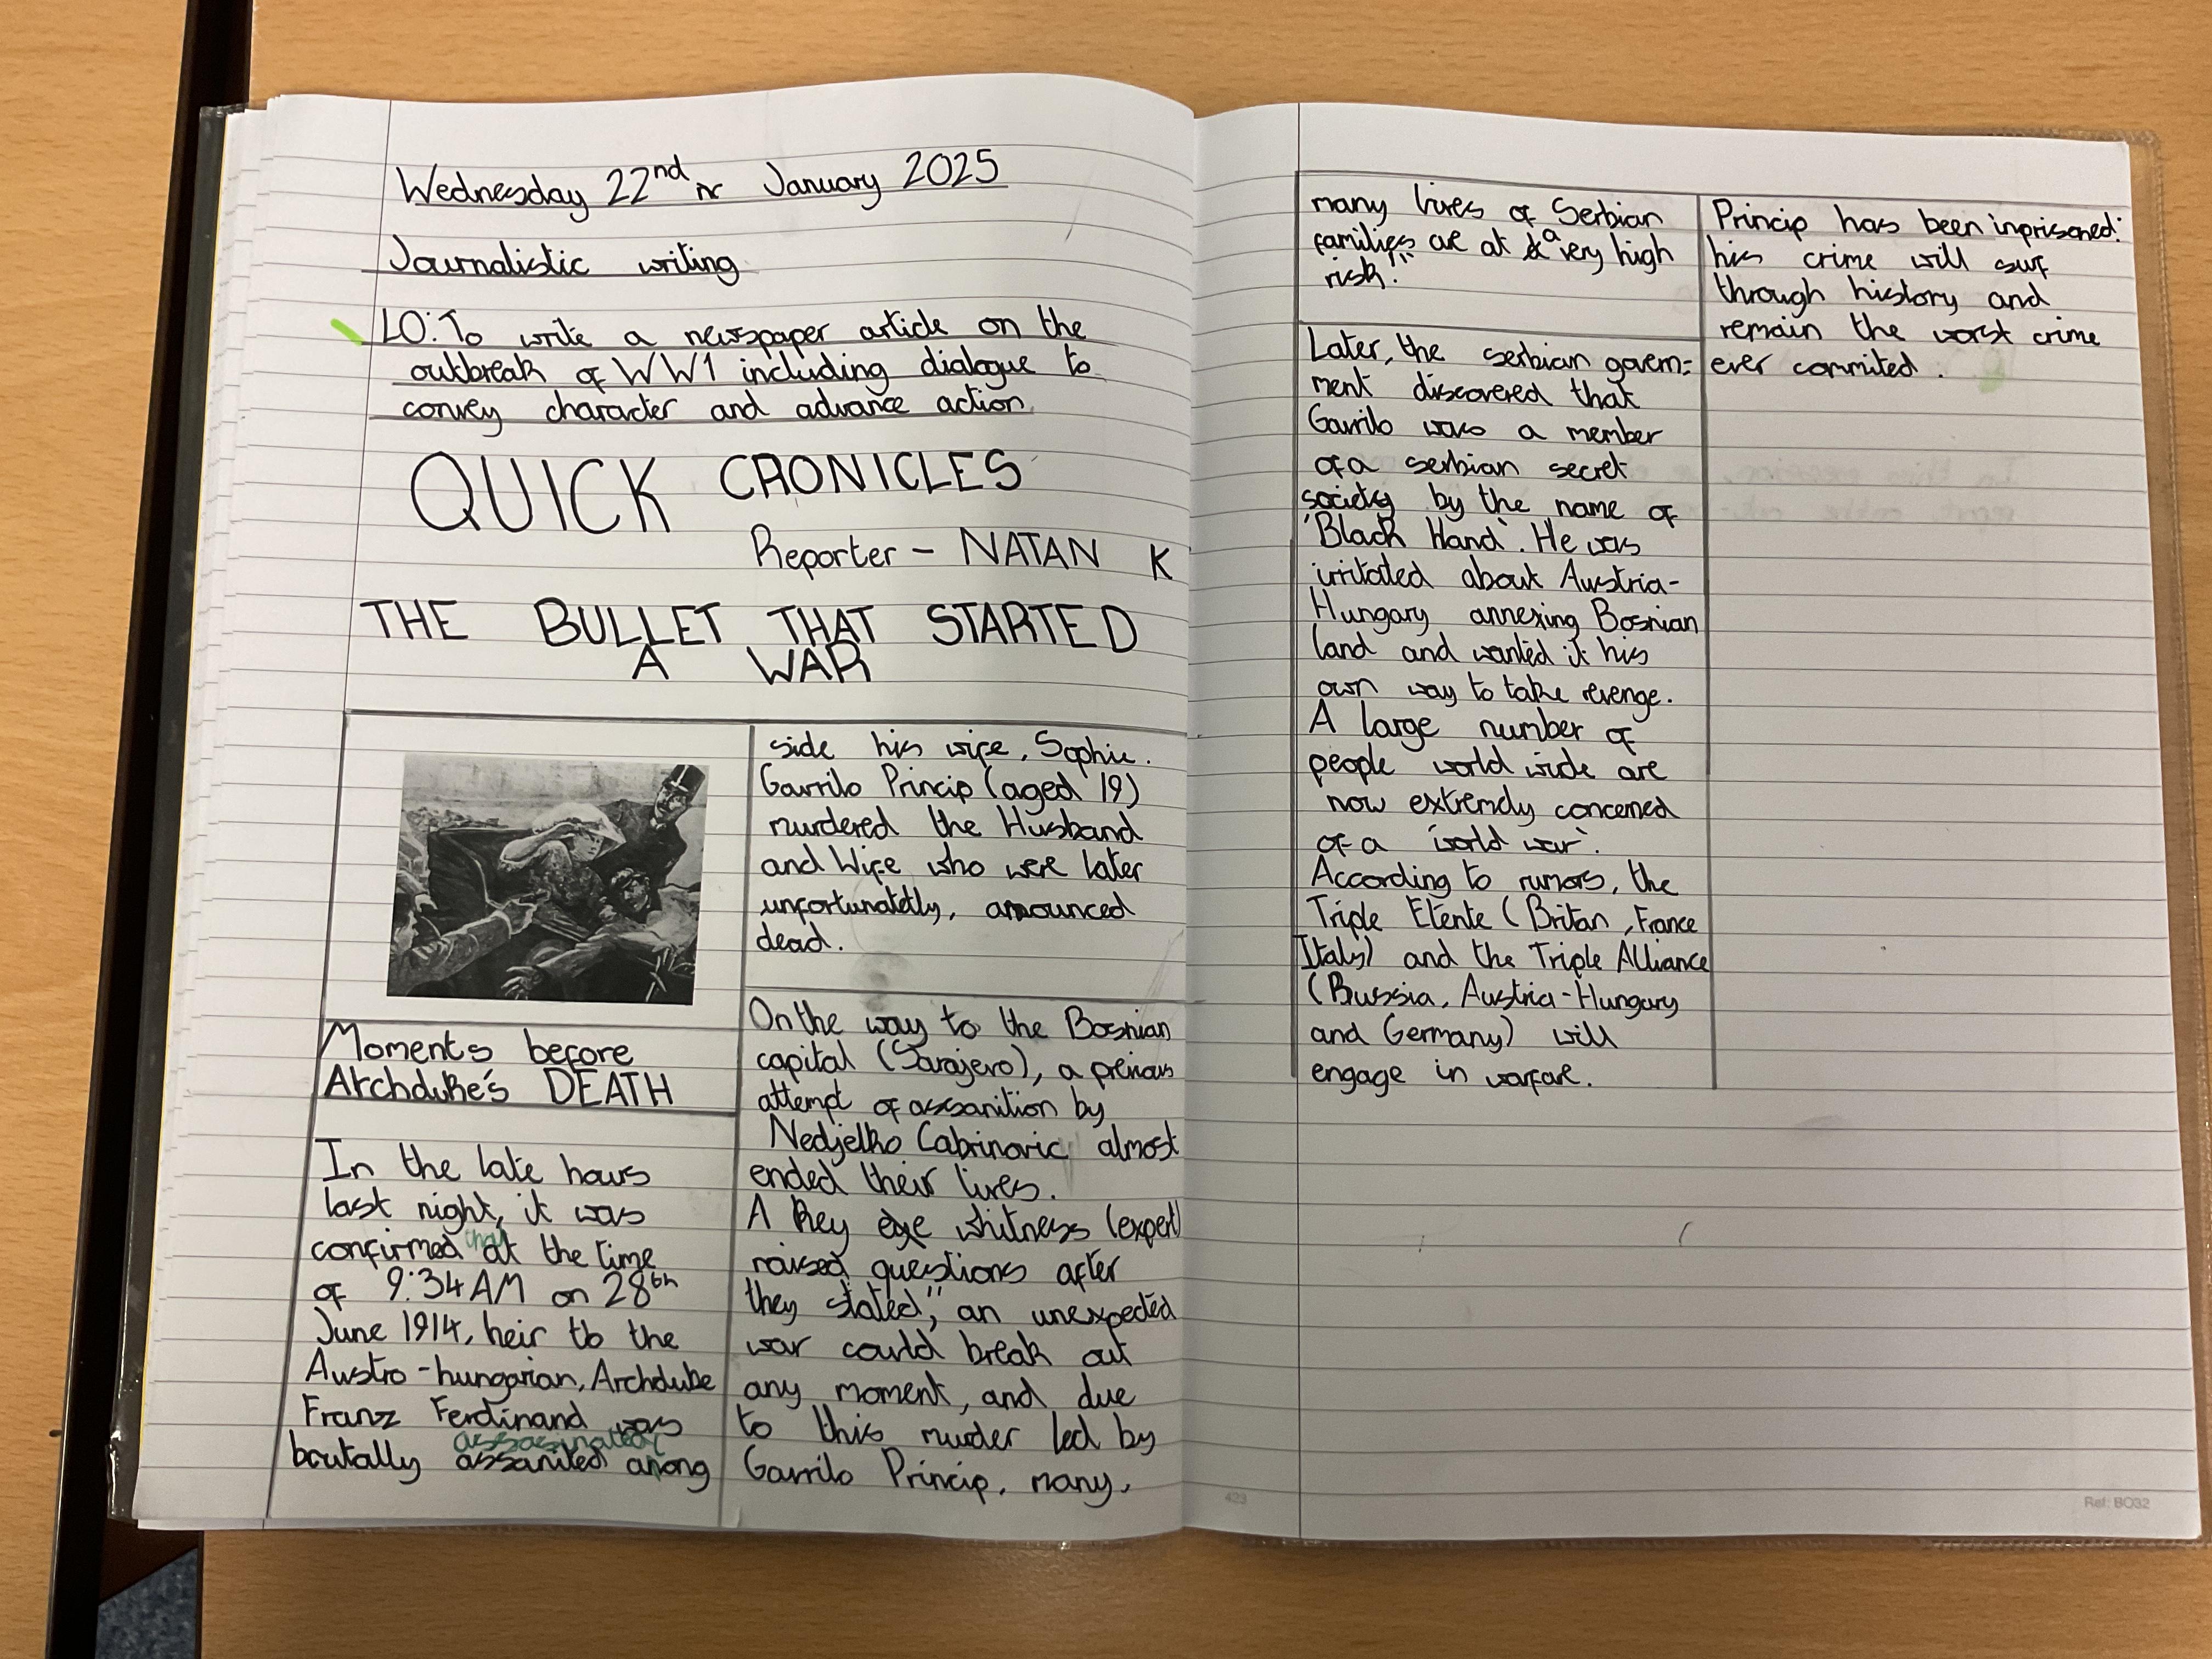 Wednesday 22nd January 2025
Journalistic writing
LO: To write a newspaper article on the
outbreak of WW1 including dialogue to
convey character and advance action
QUICK CRONICLES
Reporter - NATAN K
THE BULLET THAT STARTED
A WAR
Moments before
Archduke's DEATH
In the late hours
last night, it was
confirmed that at the time
of 9:34AM on 28th
June 1914, heir to the
Austro-hungarian, Archduke
Franz Ferdinand was
assasinated
brutally assanited along
side his wife, Sophie.
Gavrilo Princip (aged 19)
murdered the Husband
and Wife who were later
unfortunatetly, announced
dead.
On the way to the Bosnian
capital (Sarajevo), a previous
attempt of assanition by
Nedjelko Cabrinovic almost
ended their lives.
A key eye whitness (expert)
raised questions after
they stated," an unexpected
war could break out
any moment, and due
to this murder led by
Gavrilo Princip, many,
many lives of Serbian
families are at a very high
risk!"
Later, the serbian govern-
ment discovered that
Gavrilo was a member
of a serbian secret
society by the name of
'Black Hand'. He was
irritated about Austria-
Hungary annexing Bosnian
land and wanted it his
own way to take revenge.
A large number of
people world wide are
now extremly concerned
of a 'world war'.
According to rumors, the
Triple Etente (Britan, France
Italy) and the Triple Alliance
(Russia, Austria-Hungary
and Germany) will
engage in warfare.
Princip has been inprisoned:
his crime will surf
through history and
remain the worst crime
ever commited.
423
Ref: BO32